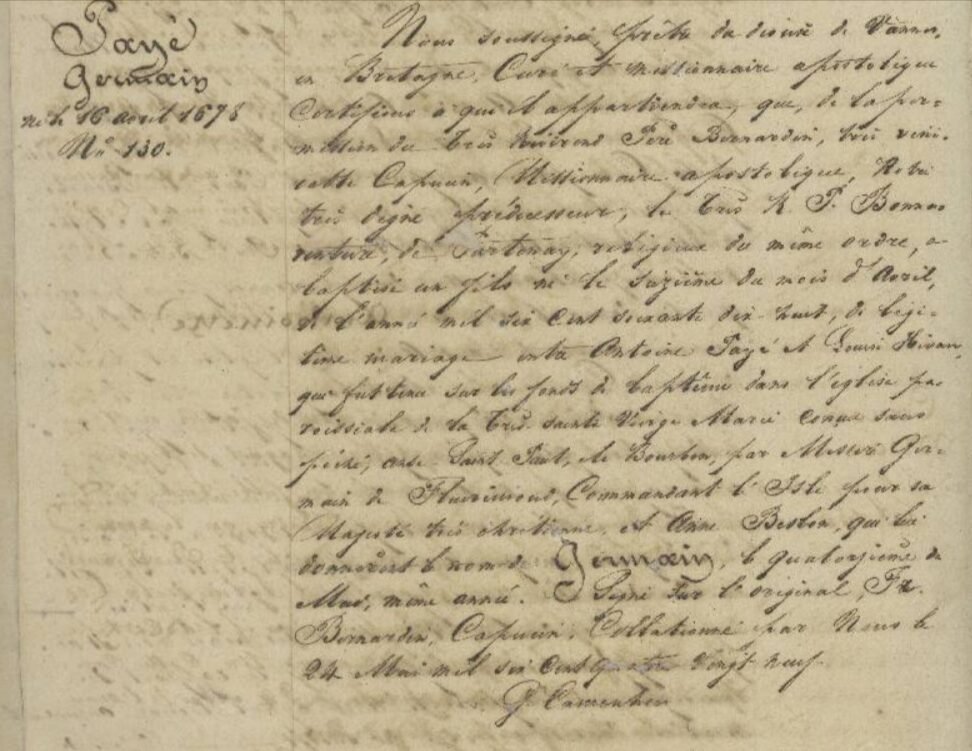 Payé
Germain
né le 16 avril 1678
No 130.
Nous soussigné, prêtre du diocèse de Vannes,
en Bretagne, Curé et missionnaire apostolique
Certifions à qui il appartiendra, que, de la per-
mission du très Révérend Père Bernardin, très véné-
rable Capucin, Missionnaire apostolique, Notre
très digne prédécesseur, le très R. P. Bonna
venture, de Partenay, religieux du même ordre, a
baptisé un fils né le seizième du mois d'Avril,
de l'année mil six cent soixante dix-huit, de légi-
time mariage entre Antoine Payé et Louise
que fut tenu sur les fonds de baptême dans l'église pa
roissiale de la très sainte Vierge Marie conçue sans
péché, anse Saint Paul, île Bourbon, par Messire Ger-
main de Fleurimond, Commandant l'Isle pour sa
Majesté très chrétienne, et Anne Beston, qui lui
donnèrent le nom de Germain, le quatorzième de
Mai, même année. Signé sur l'original, Fr.
Bernardin, Capucin. Collationné par Nous le
24 Mai mil six cent quatre vingt neuf.
G. Camenhen